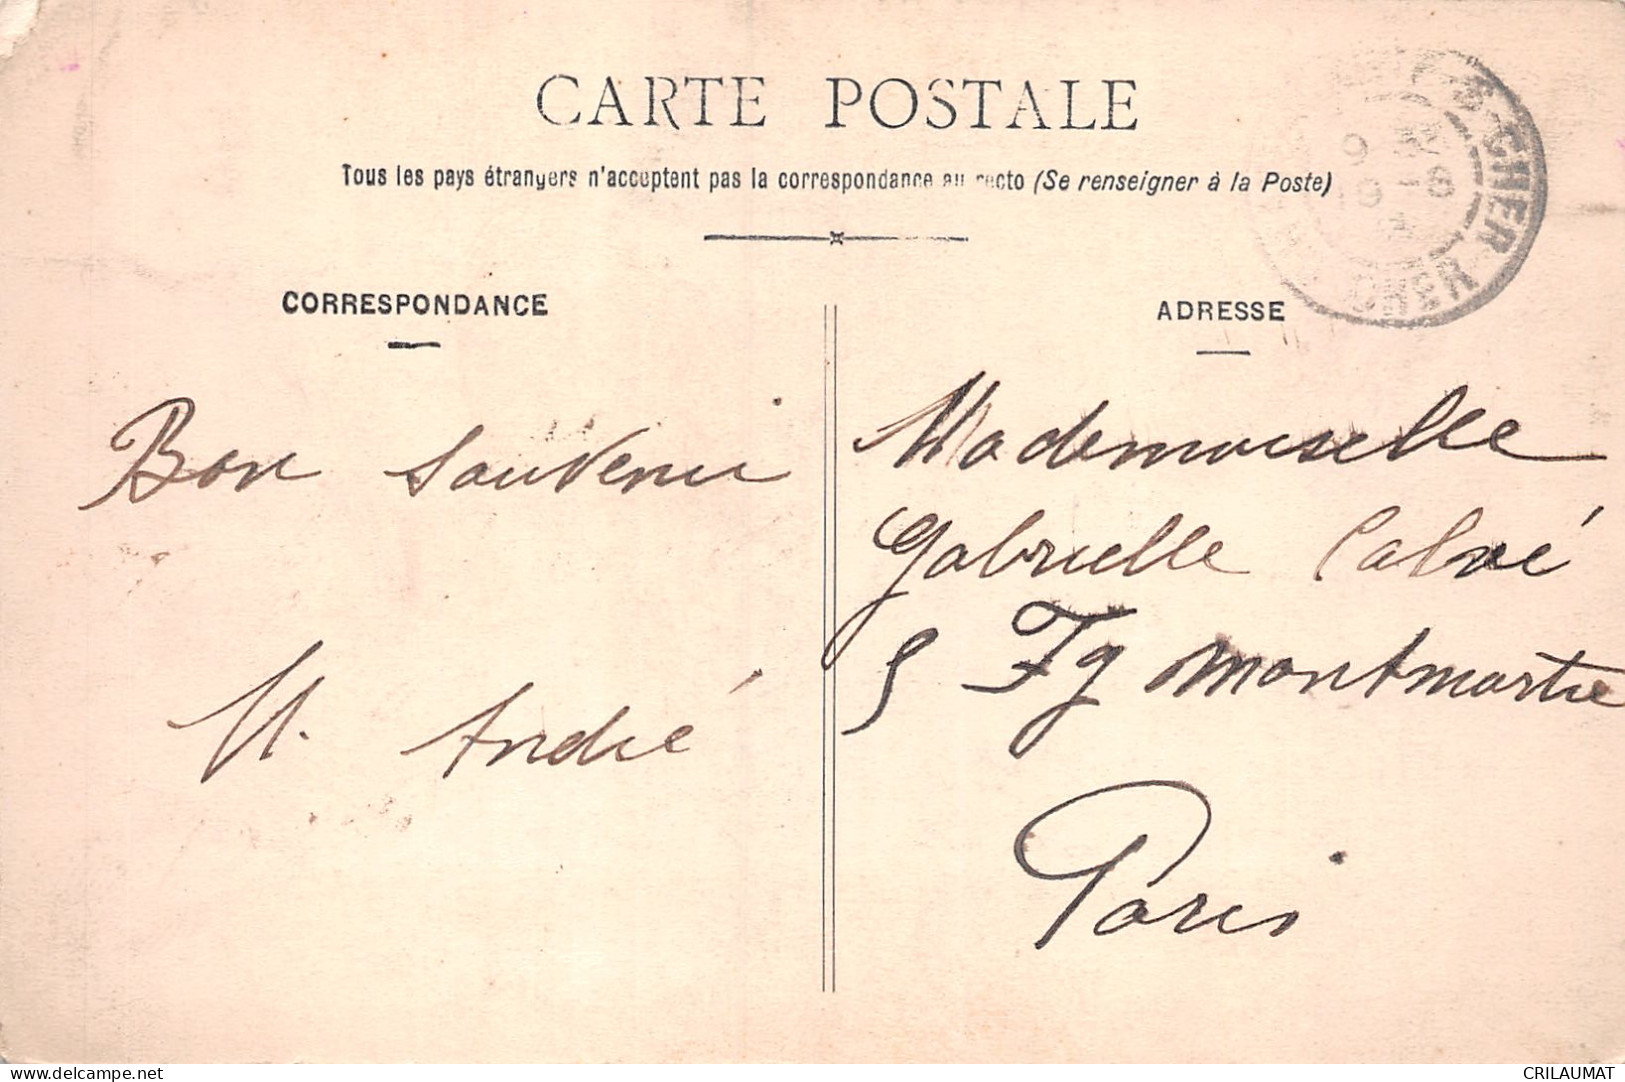 CARTE POSTALE
Tous les pays étrangers n'acceptent pas la correspondance au recto (Se renseigner à la Poste)
CORRESPONDANCE
ADRESSE
S-CHER
CHER
Bon Souvenir
M. André
Mademoiselle
Gabrielle Calvé
5 Fg Montmartre
Paris
CRILAUMAT